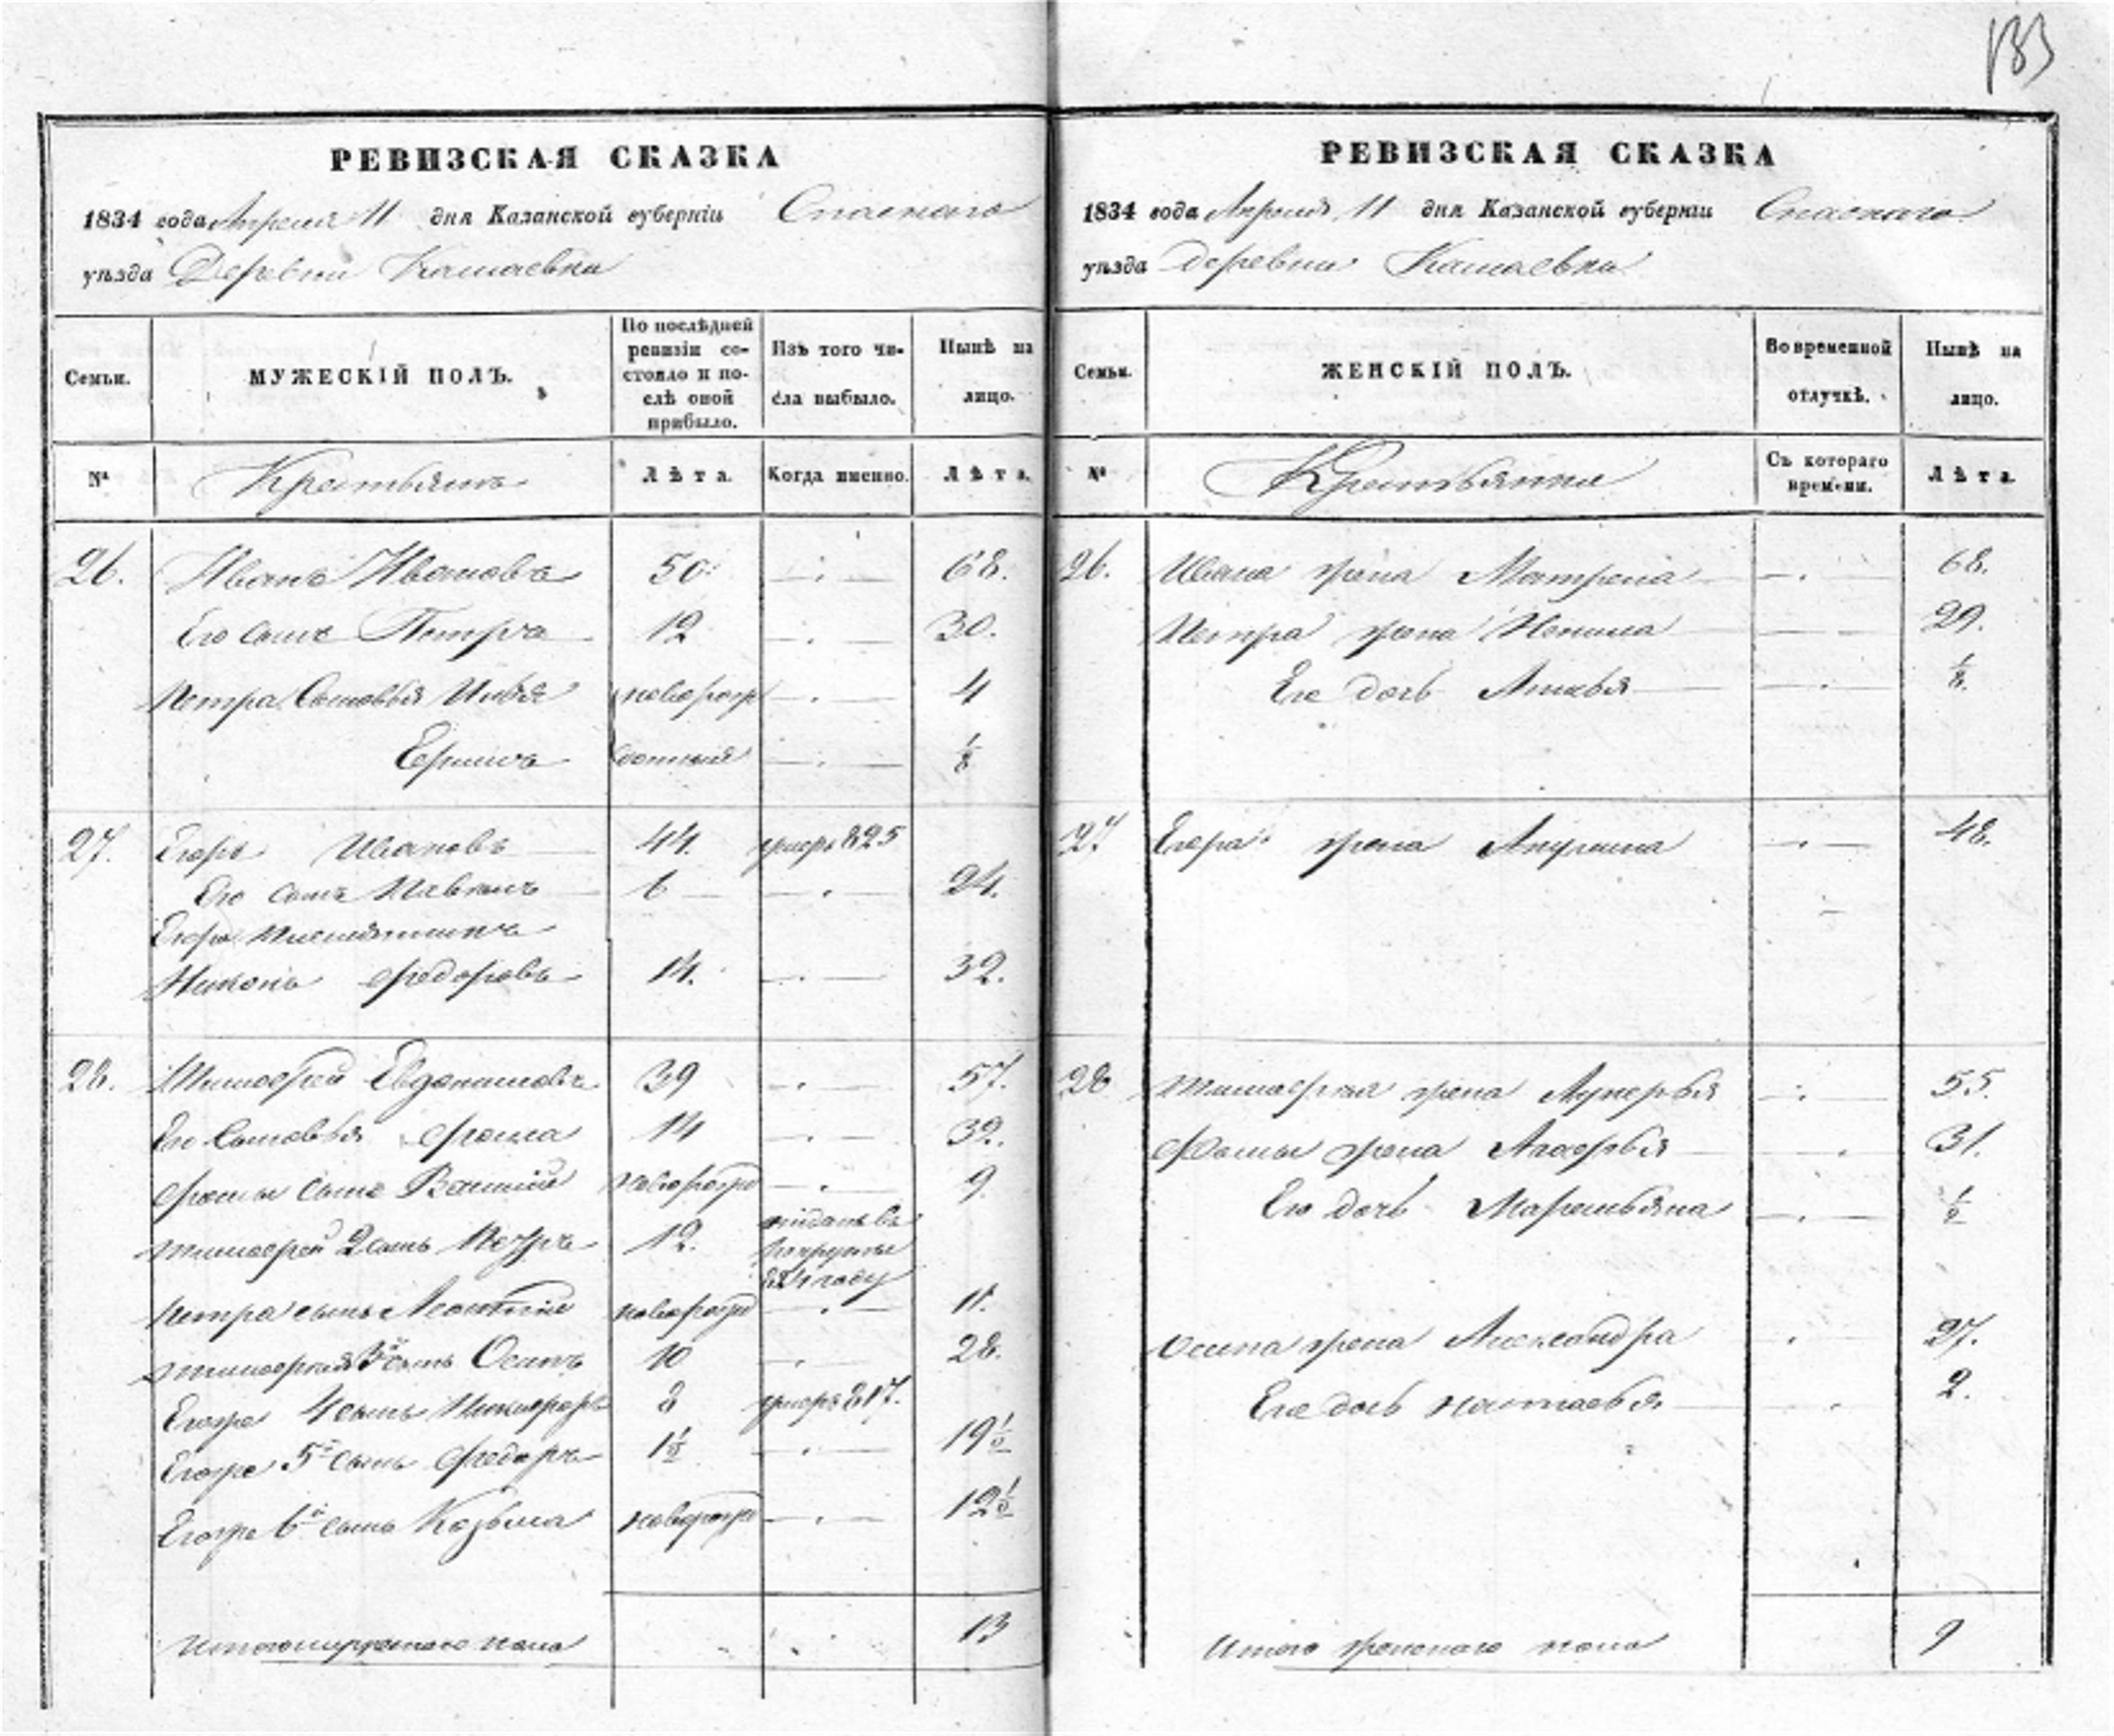 133
РЕВИЗСКАЯ СКАЗКА
1834 года Апреля 11 дня Казанской губернiи Спаскаго
уѣзда Деревни Камаевки
Семьи.
МУЖЕСКIЙ ПОЛЪ.
По послѣдней ревизiи состояло и послѣ оной прибыло.
Изъ того числа выбыло.
Нынѣ на лицо.
№
Крестьянъ
Лѣта.
Когда именно.
Лѣта.
26. Иванъ Ивановъ 50. 68.
Его сынъ Петръ 12 30.
Петра Сыновья новорож 4
1/2
27. Егоръ Ивановъ 44. умеръ 825
Его сынъ 6 24.
Егора племянникъ
Никонъ Федоровъ 14. 32.
28. Тимофей Евдокимовъ 39 57.
Его Сыновья Фома 14 32.
Фомы сынъ новорож 9
Тимофея 2 сынъ Петръ 12. отданъ въ
рекруты
824 году
Петра сынъ Леонтiй новорож 11.
Тимофея 3й сынъ Осипъ 10 28.
Егоже 4 сынъ Никифоръ 8 умеръ 817.
Егоже 5й сынъ Федоръ 1 1/2 19 1/2
Егоже 6й сынъ Козьма новорож 12 1/2
Итого мужескаго пола 13
РЕВИЗСКАЯ СКАЗКА
1834 года Апреля 11 дня Казанской губернiи Спаскаго
уѣзда деревни Камаевки
Семьи.
ЖЕНСКIЙ ПОЛЪ.
Во временной отлучкѣ.
Нынѣ на лицо.
№
Крестьянки
Съ котораго времени.
Лѣта.
26. Ивана жена Матрена 68.
Петра жена Ненила 29.
Ее дочь
27 Егора жена Акулина 48.
28 Тимофея жена Лукерья 55.
Фомы жена Агафья 31.
Его дочь Маремьяна 1/2
Осипа жена Александра 27.
Ее дочь Настасья 2.
Итого женского пола 9